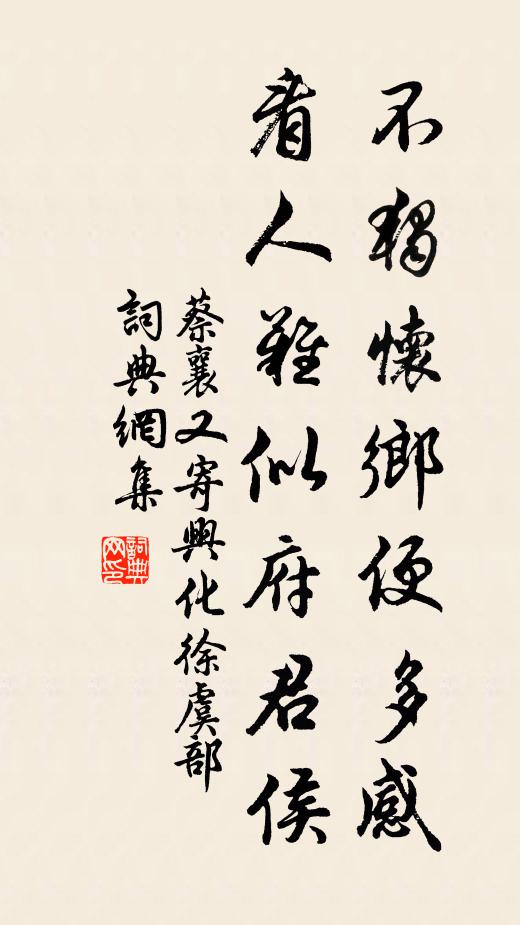 不獨懷鄉便多感
看人難似府君侯
蔡襄又寄興化徐虞部
詞典網集
詞典网印